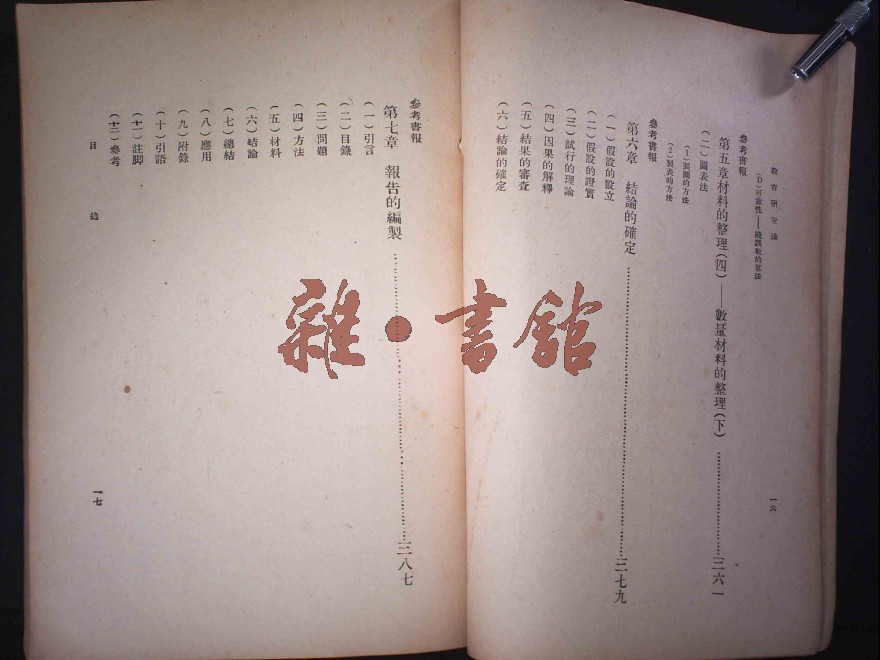 教育研究法
(D)可靠性——機誤數的算法
參考書報
第五章材料的整理(四)——數量材料的整理(下)……三六一
(二)圖表法
(1)製圖的方法
(2)製表的方法
參考書報
第六章 結論的確定……三七九
(一)假設的設立
(二)假設的證實
(三)試行的理論
(四)因果的解釋
(五)結果的審查
(六)結論的確定
一六
參考書報
第七章 報告的編製……三八七
(一)引言
(二)目錄
(三)問題
(四)方法
(五)材料
(六)結論
(七)總結
(八)應用
(九)附錄
(十)引語
(十一)註脚
(十二)參考
目錄
一七
雜·書館